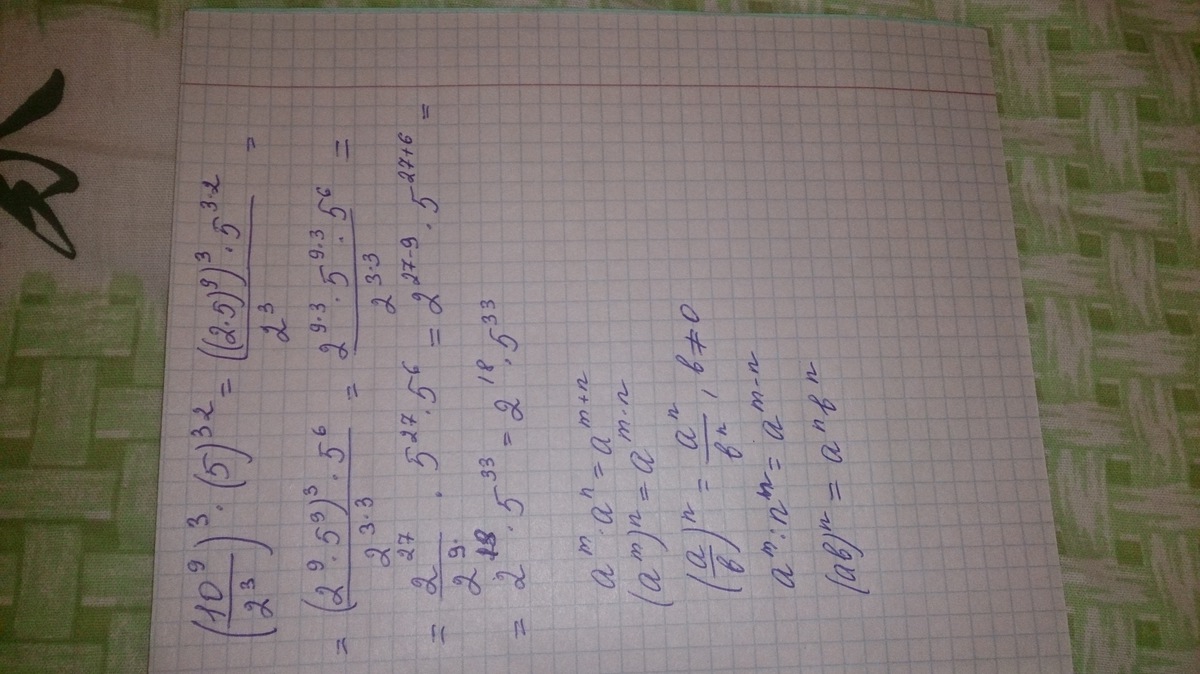 (10⁹/2³)³ · (5)³² = ((2·5)⁹)³ · 5³·²/2³ =
= (2⁹ · 5⁹)³ · 5⁶/2³·³ = 2⁹·³ · 5⁹·³ · 5⁶/2³·³ =
= 2²⁷/2⁹· · 5²⁷ · 5⁶ = 2²⁷⁻⁹ · 5²⁷⁺⁶ =
= 2¹⁸ · 5³³ = 2¹⁸ · 5³³
aᵐ · aⁿ = aᵐ⁺ⁿ
(aᵐ)ⁿ = aᵐ·ⁿ
(a/b)ⁿ = aⁿ/bⁿ, b ≠ 0
aᵐ : nⁿ = aᵐ⁻ⁿ
(ab)ⁿ = aⁿbⁿ